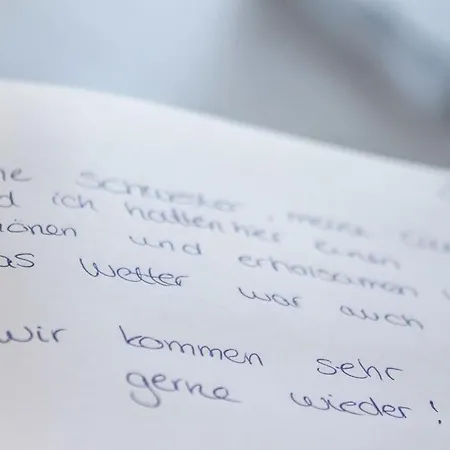 ne Schwester, meine
d ich hatten hier einen
hönen und erholsamen
as Wetter war auch
wir kommen sehr
gerne wieder!